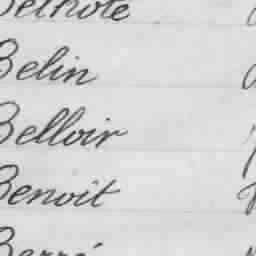 Belhote
Belin
Belloir
Benoit
Berré